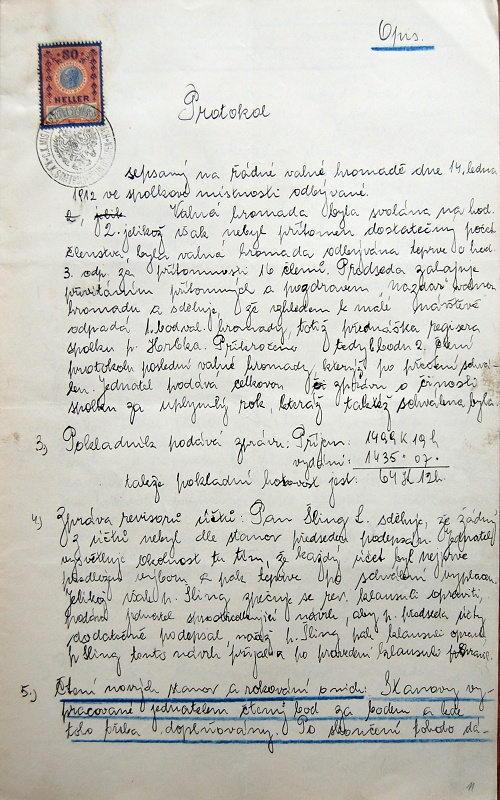 Opis.
80
HELLER
Protokol
sepsaný na řádné valné hromadě dne 14. ledna
1912 ve spolkové místnosti odbývané.
Valná hromada byla svolána na hod.
2. jelikož však nebyl přítomen dostatečný počet
členstva, byla valná hromada odbývána teprve o hod.
3. odp. za přítomnosti 16 členů. Předseda zahajuje
přivítáním přítomných a pozdravem nazdar valnou
hromadu a sděluje, že vzhledem k malé návštěvě
odpadá 1. bod val. hromady, totiž přednáška
spolku p. Hrbka. Přikročeno tedy k bodu 2. čtení
protokolu poslední valné hromady, kterýž po přečtení schvá-
len. Jednatel podává celkovou zprávu o činnosti
spolku za uplynulý rok, kteráž taktéž schválena byla.
3,) Pokladník podává zprávu: Příjm: 1499 K 19 h
vydání: 1435 · 07 ·
takže pokladní hotovost jest: 64 K 12 h.
4,) Zpráva revisorů účtů: Pan Šling L. sděluje, že žádný
z účtů nebyl dle stanov předsedou podepsán. Jednatel
vysvětluje okolnost tu tím, že každý účet byl nejprve
předložen výboru a pak teprve po schválení vyplacen.
Jelikož však p. Šling zpěčuje se rev. klausuli opraviti,
podává jednatel zprostředkující návrh, aby p. předseda účty
dodatečně podepsal načež p. Šling pak klausuli opraví
p. Šling tento návrh přijal a po provedení klausuli
5,) Čtení nových stanov a rokování o nich: Stanovy vy-
pracované jednatelem čteny bod za bodem a kde
toho třeba doplňovány. Po skončení pohodo dá-
11